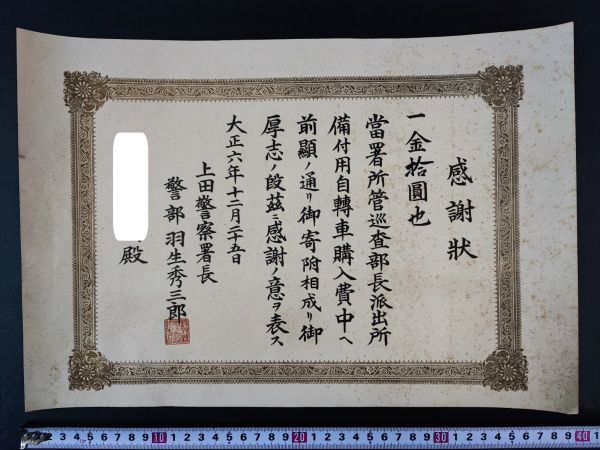 感謝狀
一金拾圓也
當署所管巡査部長派出所
備付用自轉車購入費中ヘ
前顯ノ通リ御寄附相成リ御
厚志ノ段茲ニ感謝ノ意ヲ表ス
大正六年十二月二十五日
上田警察署長
警部 羽生秀三郎
殿
2 3 4 5 6 7 8 9 10 1 2 3 4 5 6 7 8 9 20 1 2 3 4 5 6 7 8 9 30 1 2 3 4 5 6 7 8 9 40 1